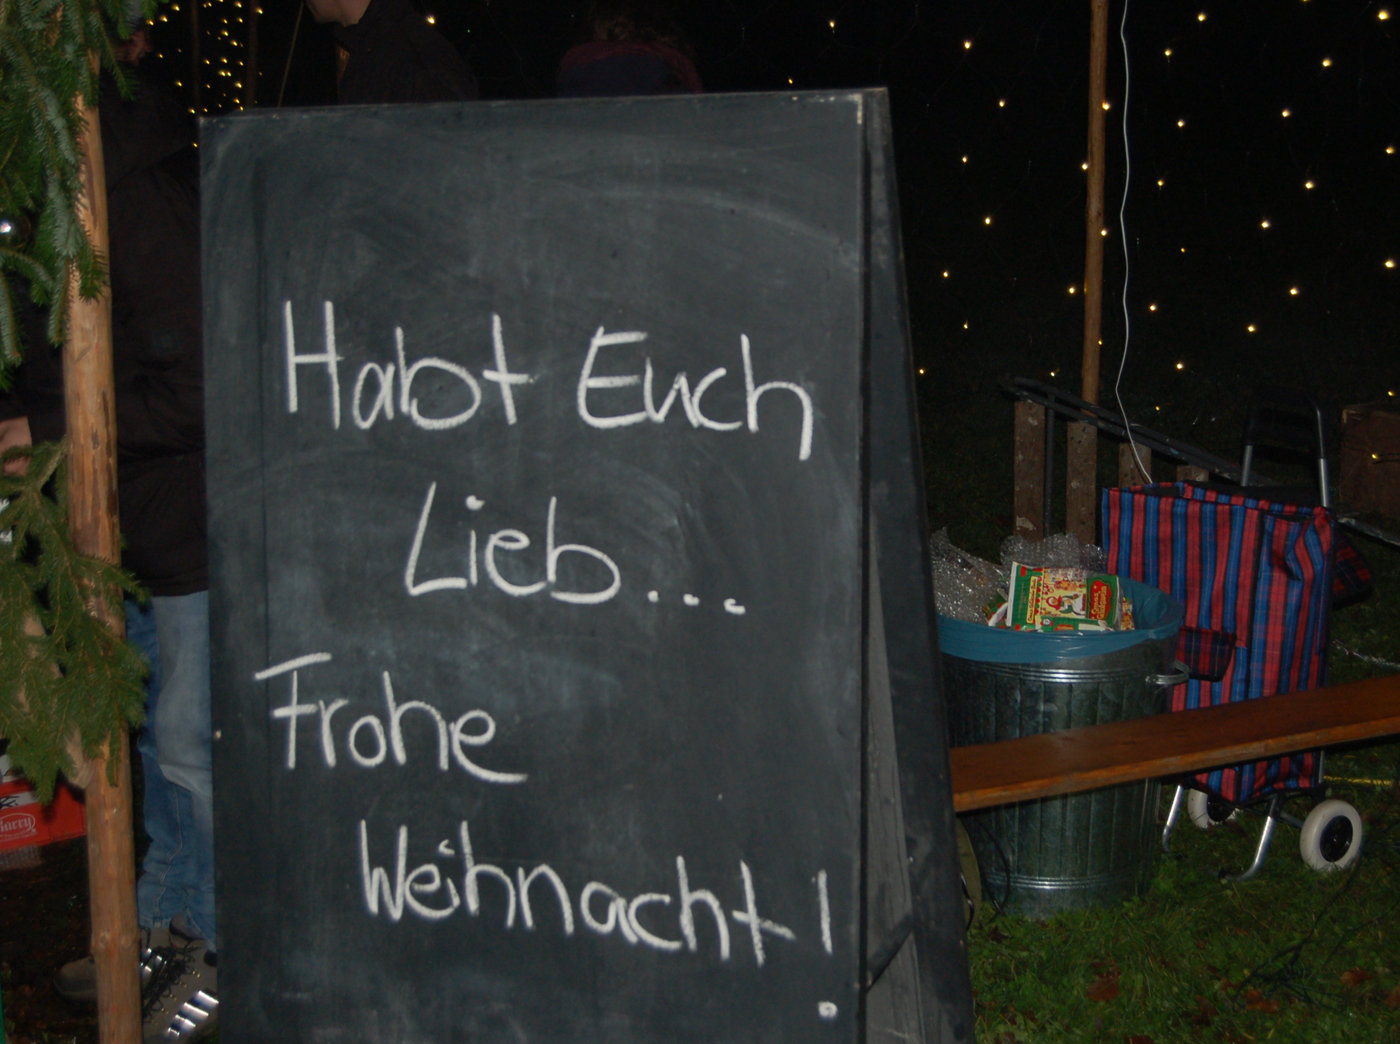 Habt Euch
Lieb...
Frohe
Weihnacht!